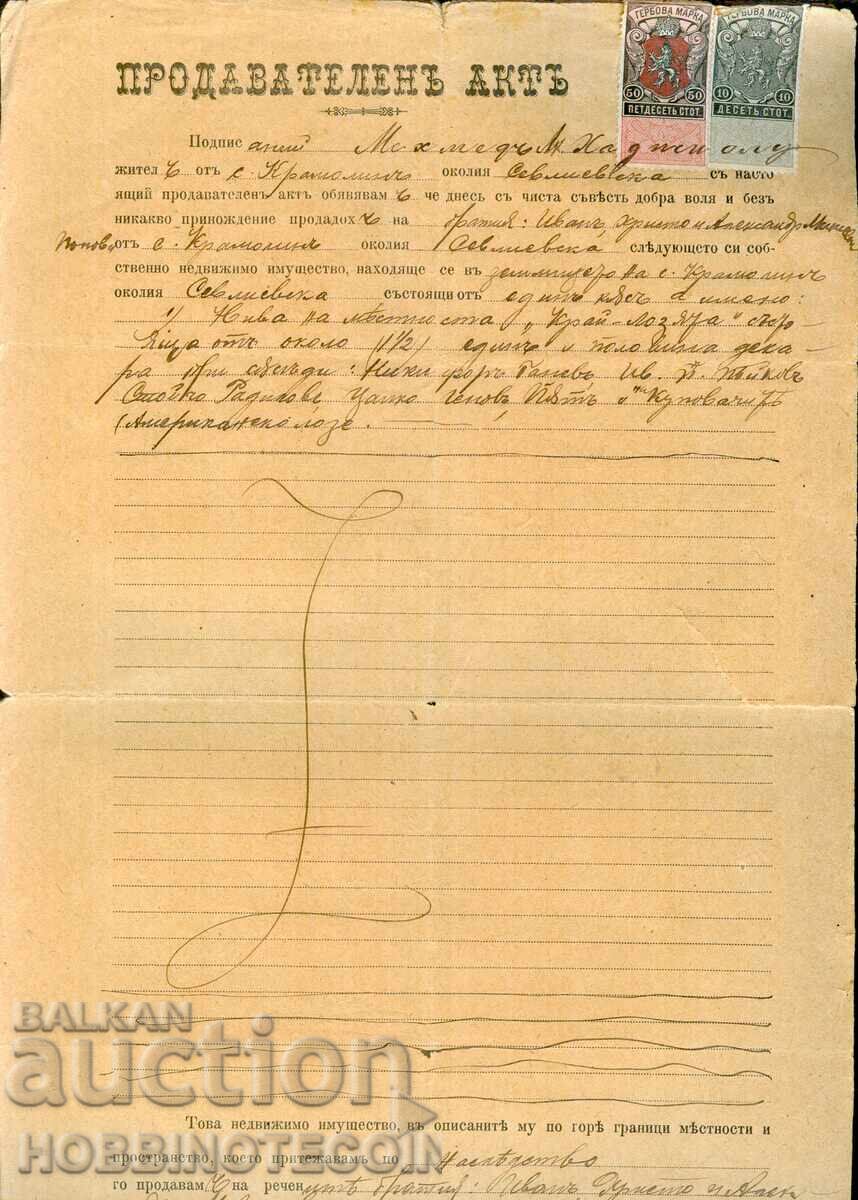 ГЕРБОВА МАРКА
50 50
ПЕТДЕСЕТЬ СТОТ.
ГЕРБОВА МАРКА
10 10
ДЕСЕТЬ СТОТ.
ПРОДАВАТЕЛЕНЪ АКТЪ
Подпис Мехмедъ Хаджи
жител ъ отъ с. Крамолинъ околия Севлиевска съ насто
ящий продавателен актъ обявявам ъ че днесь съ чиста съвѣсть добра воля и безъ
никакво принождение продадох ъ на братия: Иванъ, Христо и Александръ
Попови отъ с. Крамолинъ околия Севлиевска слѣдующето си соб-
ственно недвижимо имущество, находяще се въ землището на с. Крамолинъ
околия Севлиевска състоящи отъ единъ кѫсъ а имено:
1) Нива на мѣстноста „Край-лозята" състо
яща отъ около (1 1/2) единъ и половина дека
ра при съсѣди: Никифоръ Ганевъ Ив.
Стойчо Радикове Цанко Геновъ Пѫтъ и Купувачитѣ
(Американско лозе.
BALKAN
auction
HOBBINOTECOIN
Това недвижимо имущество, въ описанитѣ му по горѣ граници мѣстности и
пространство, което притежавамъ по наслѣдство
го продавам ъ на речен итѣ братия: Иванъ Христо и Алек